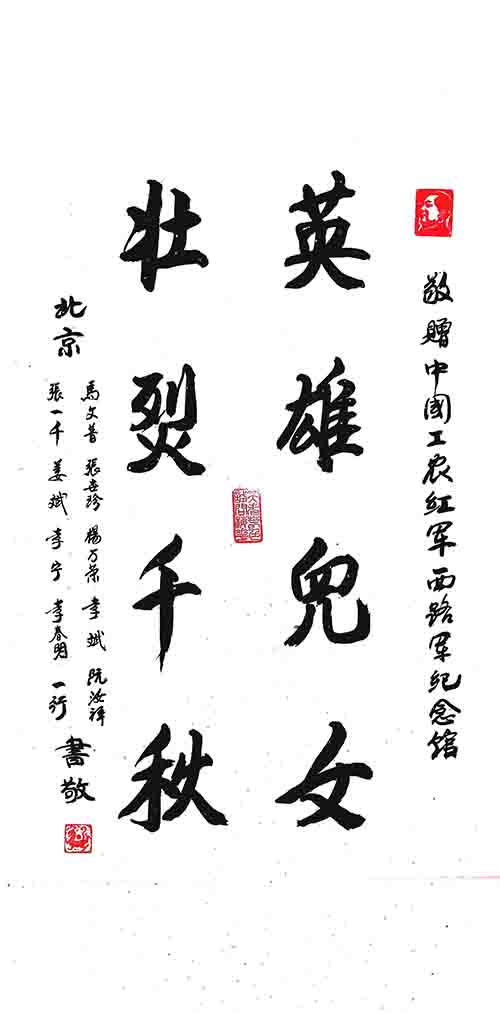 敬贈中國工农红军西路军纪念馆
英雄兒女
壮烈千秋
北京
馬文普 張世珍 楊万荣 李斌 阮汝祥
張一千 姜斌 李宁 李春明 一行
書敬